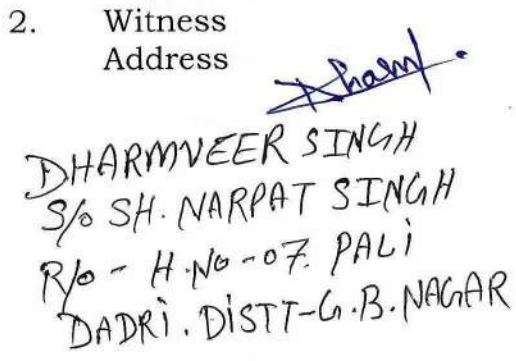 2. Witness
Address
Dharm
DHARMVEER SINGH
S/o SH. NARPAT SINGH
R/o - H.No-07. PALI
DADRI. DISTT-G.B.NAGAR